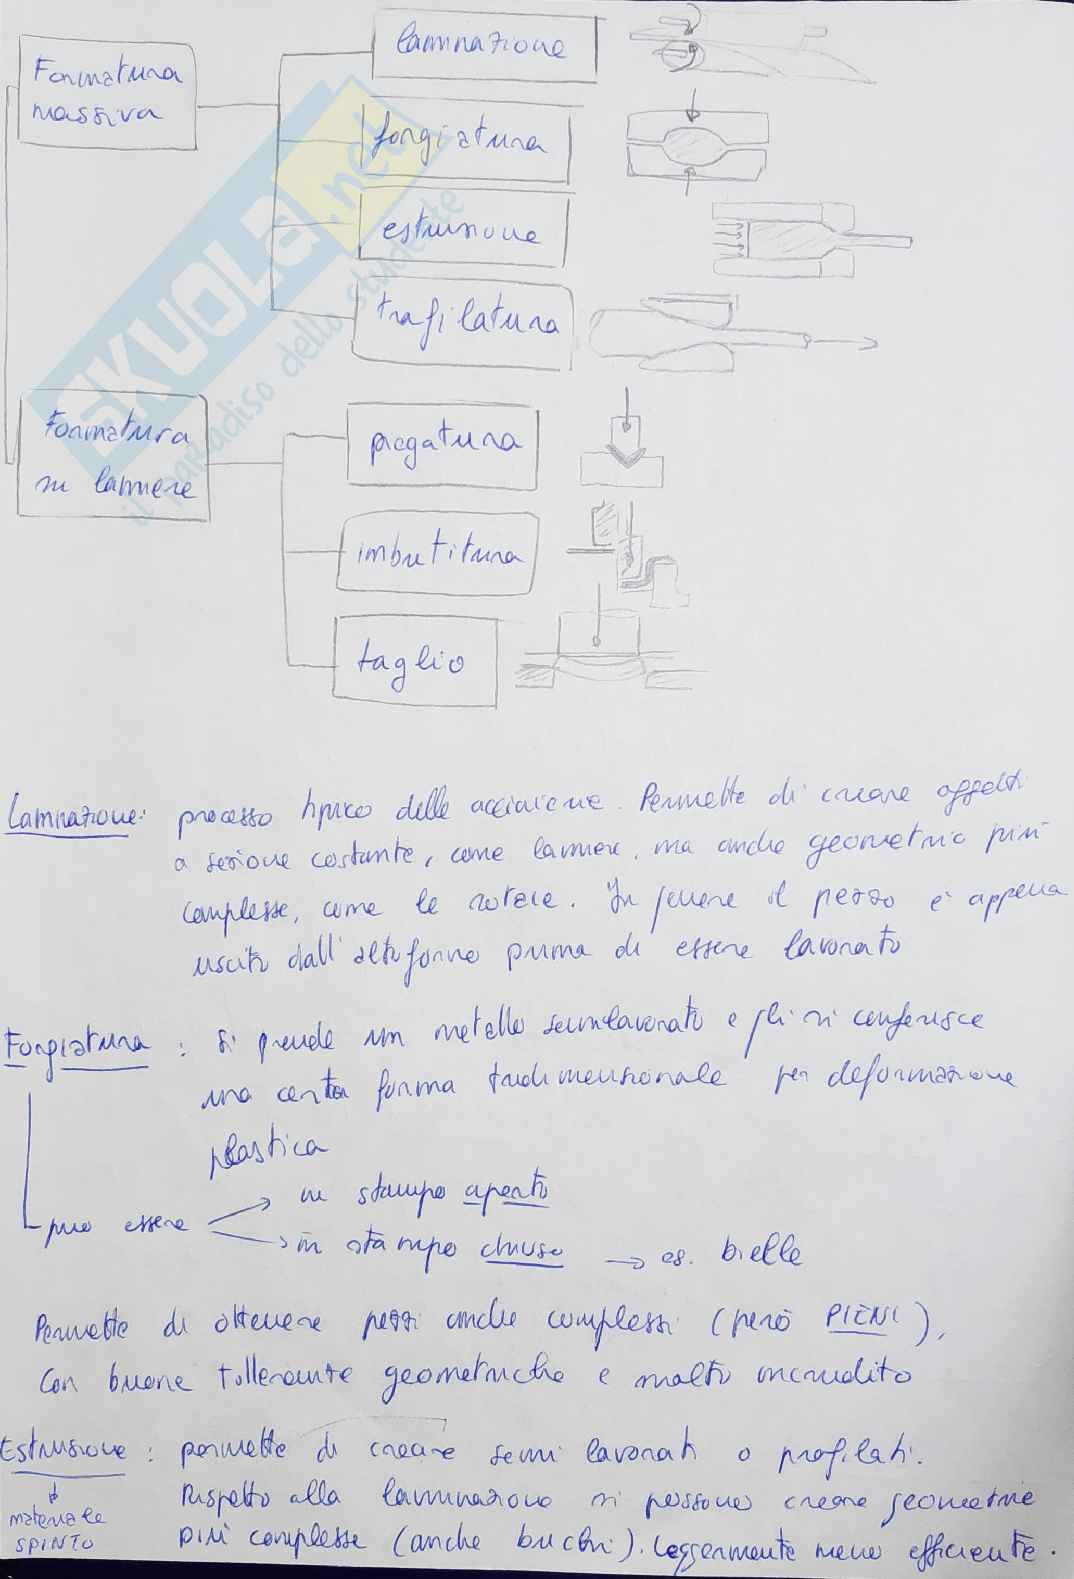 Formatura
massiva
laminazione
forgiatura
estrusione
trafilatura
Formatura
su lamiere
piegatura
imbutitura
taglio
SKUOLA.net
il paradiso dello studente
Laminazione: processo tipico delle acciaierie. Permette di creare oggetti
a sezione costante, come lamiere, ma anche geometrie più
complesse, come le rotaie. In genere il pezzo è appena
uscito dall'altoforno prima di essere lavorato
Forgiatura : Si prende un metallo semilavorato e gli si conferisce
una certa forma tridimensionale per deformazione
plastica
può essere
in stampo aperto
in stampo chiuso → es. bielle
Permette di ottenere pezzi anche complessi (però PIENI),
con buone tolleranze geometriche e molto incrudito
Estrusione : permette di creare semi lavorati o profilati.
materiale
SPINTO
Rispetto alla laminazione si possono creare geometrie
più complesse (anche buchi). Leggermente meno efficiente.